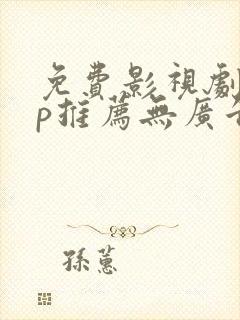 免費影視劇
p推薦無廣告
孫蕙